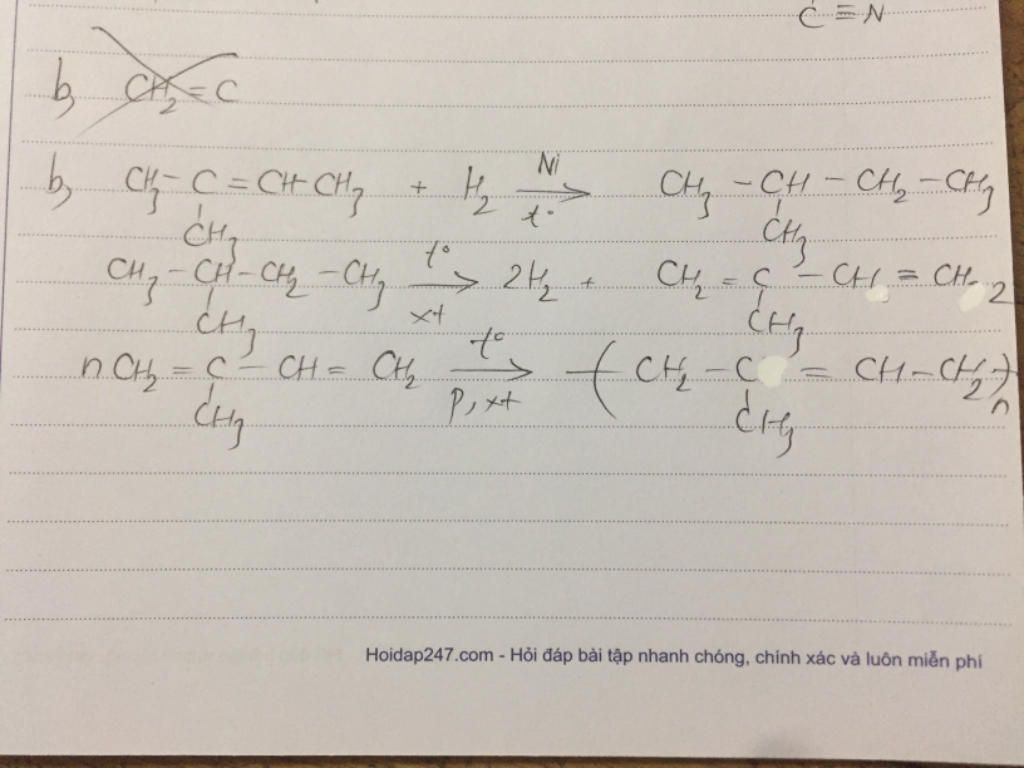 C ≡ N
b, CH₂ = C
b, CH₃ - C = CH - CH₃ + H₂ Ni t° → CH₃ - CH - CH₂ - CH₃
CH₃ CH₃
CH₃ - CH - CH₂ - CH₃ t° xt → 2H₂ + CH₂ = C - CH = CH₂
CH₃ CH₃
nCH₂ = C - CH = CH₂ t° p, xt → ( CH₂ - C = CH - CH₂ )n
CH₃ CH₃
Hoidap247.com - Hỏi đáp bài tập nhanh chóng, chính xác và luôn miễn phí